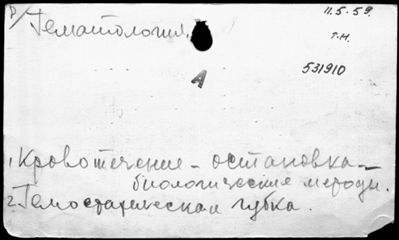 Р/Гематология
11.5.59.
т.н.
А
531910
1. Кровотечение - остановка -
биологические методы.
2. Гемостатическая губка.